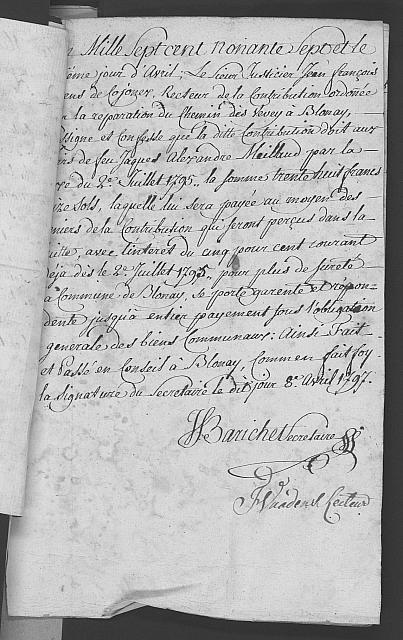 Mille Sept cent nonante Sept et le
ième jour d'Avril, Le Sieur Justicier Jean françois
ens de Cojonex, Recteur de la Contribution ordonée
la reparation du Chemin des Vevey a Blonay,
signe et Confesse que la ditte Contribution doit aux
rs de feu Jaques Alexandre par la
re du 2e. Juillet 1795, la somme trente huit francs
ze Sols, laquelle lui sera payée au moyen des
niers de la Contribution qui seront perçus dans la
ite, avec l'interêt du cinq pour cent courant
eja dès le 2e. Juillet 1795, pour plus de sureté
a Commune de Blonay, se porte garente et repon
dente jusqu'a entier payement sous l'obligation
generale des biens Communaux: Ainsi Fait
et Passé en Conseil à Blonay, Comme en fait foy
la signature du Secretaire le dit jour 8e. Avril 1797.
Barichet Secretaire